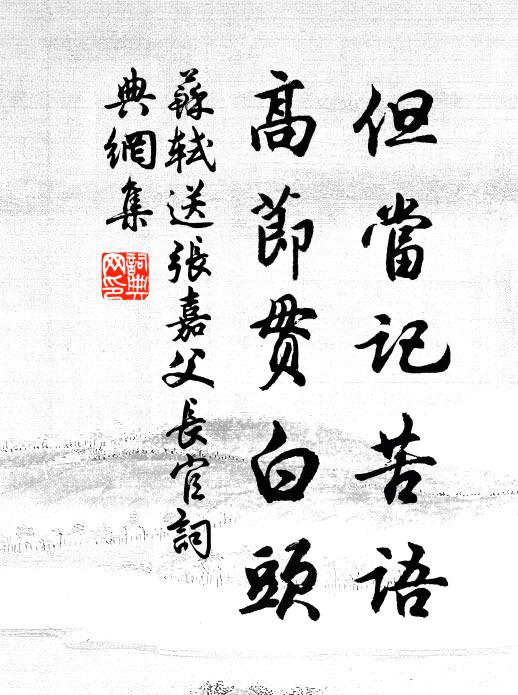 但當記苦語
高節貫白頭
蘇軾送張嘉父長官詞
典網集
詞典網印